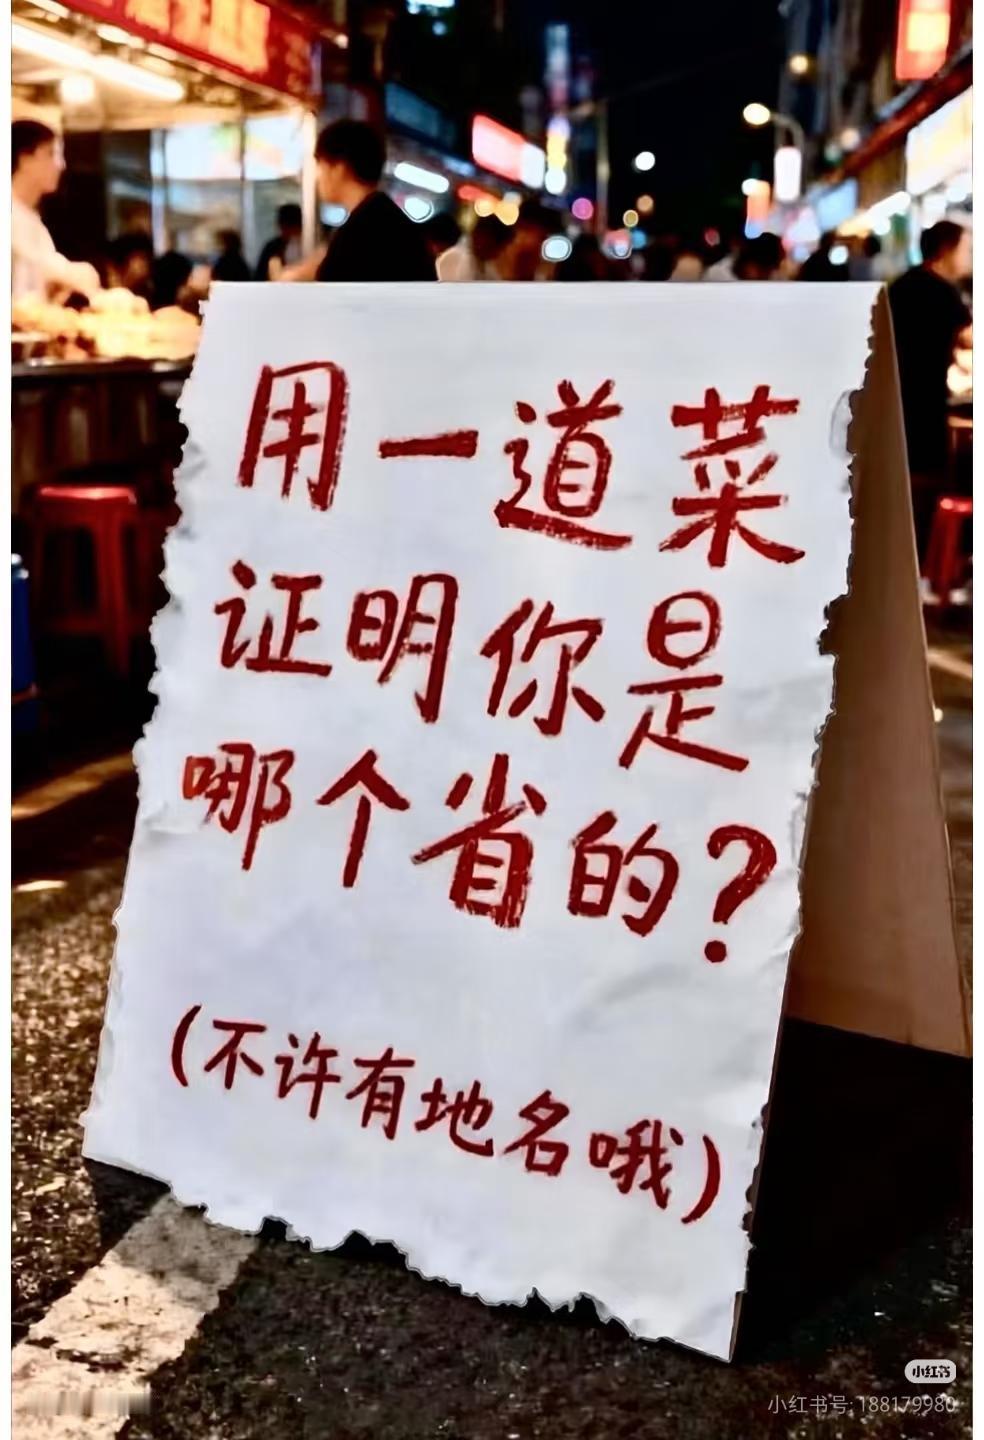 用一道菜
证明你是
哪个省的?
(不许有地名哦)
小红书
小红书号: 188179980